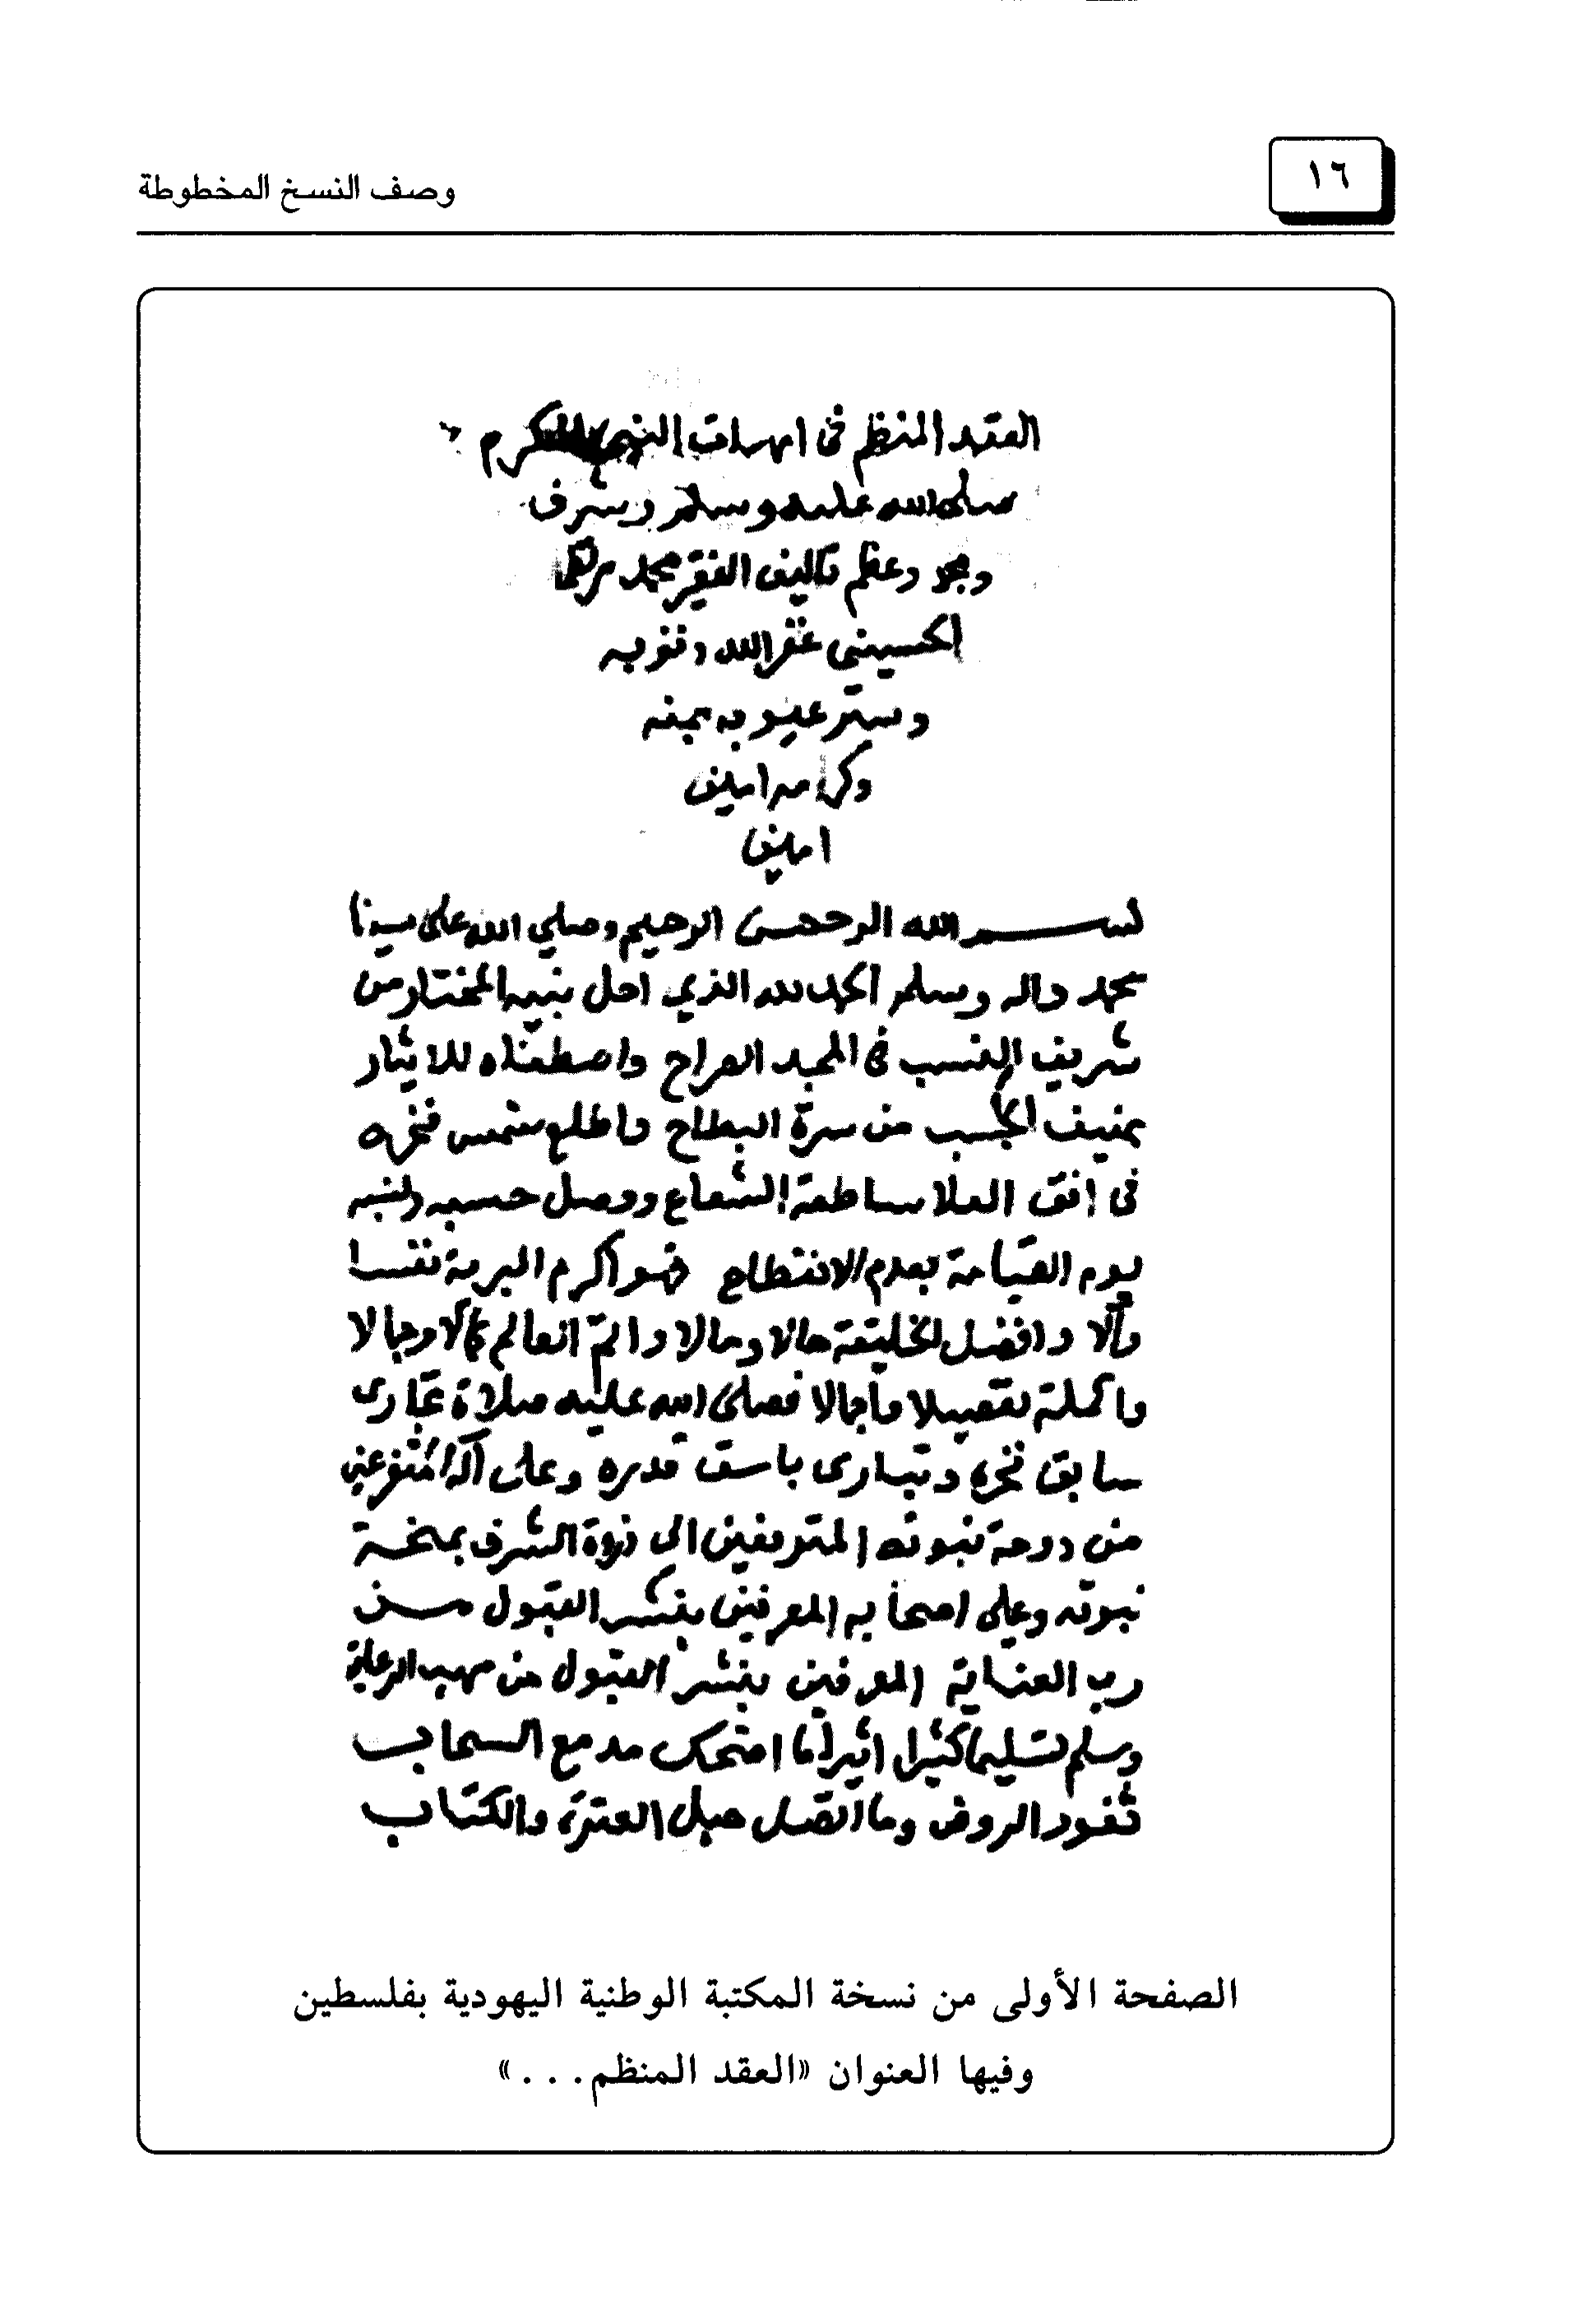 ١٦
وصف النسخ المخطوطة
العقد المنظم فى امهات النبى المكرم
صلى الله عليه وسلم وشرف
ومجد وعظم تاليف الفقير محمد مرتضى
الحسينى غفر الله ذنوبه
وستر عيوبه بمنه
وكرامه امين
امين
بسم الله الرحمن الرحيم وصلي الله على سيدنا
محمد واله وسلم الحمد لله الذي احل نبيه المختار من
شريف النسب فى المجد الصراح واصطفاه للايثار
بمنيف الحسب من سرة البطاح واطلع شمس فخره
فى افق العلا ساطعة الشعاع ووصل حسبه ونسبه
يوم القيامة بعدم الانقطاع فهو اكرم البرية نفسا
وآلا وافضل الخليقة حالا ومالا واتم العالم كمالا وجمالا
واكملة تفصيلا واجمالا فصلى الله عليه صلاة تجارى
سابق فخره وتبارى باسق قدره وعلى آله المتفرعين
من دوحة نبوته المترقين الى ذروة الشرف بمنحة
نبوته وعلى اصحابه المعرفين بنشر القبول من
رب العناية المعرفين بنشر القبول من مهب الرعاية
وسلم تسليما كثيرا اثيرا ما اضحك مدمع السحاب
ثغور الروض وما اتصل حبل العترة والكتاب
الصفحة الأولى من نسخة المكتبة الوطنية اليهودية بفلسطين
وفيها العنوان «العقد المنظم...»